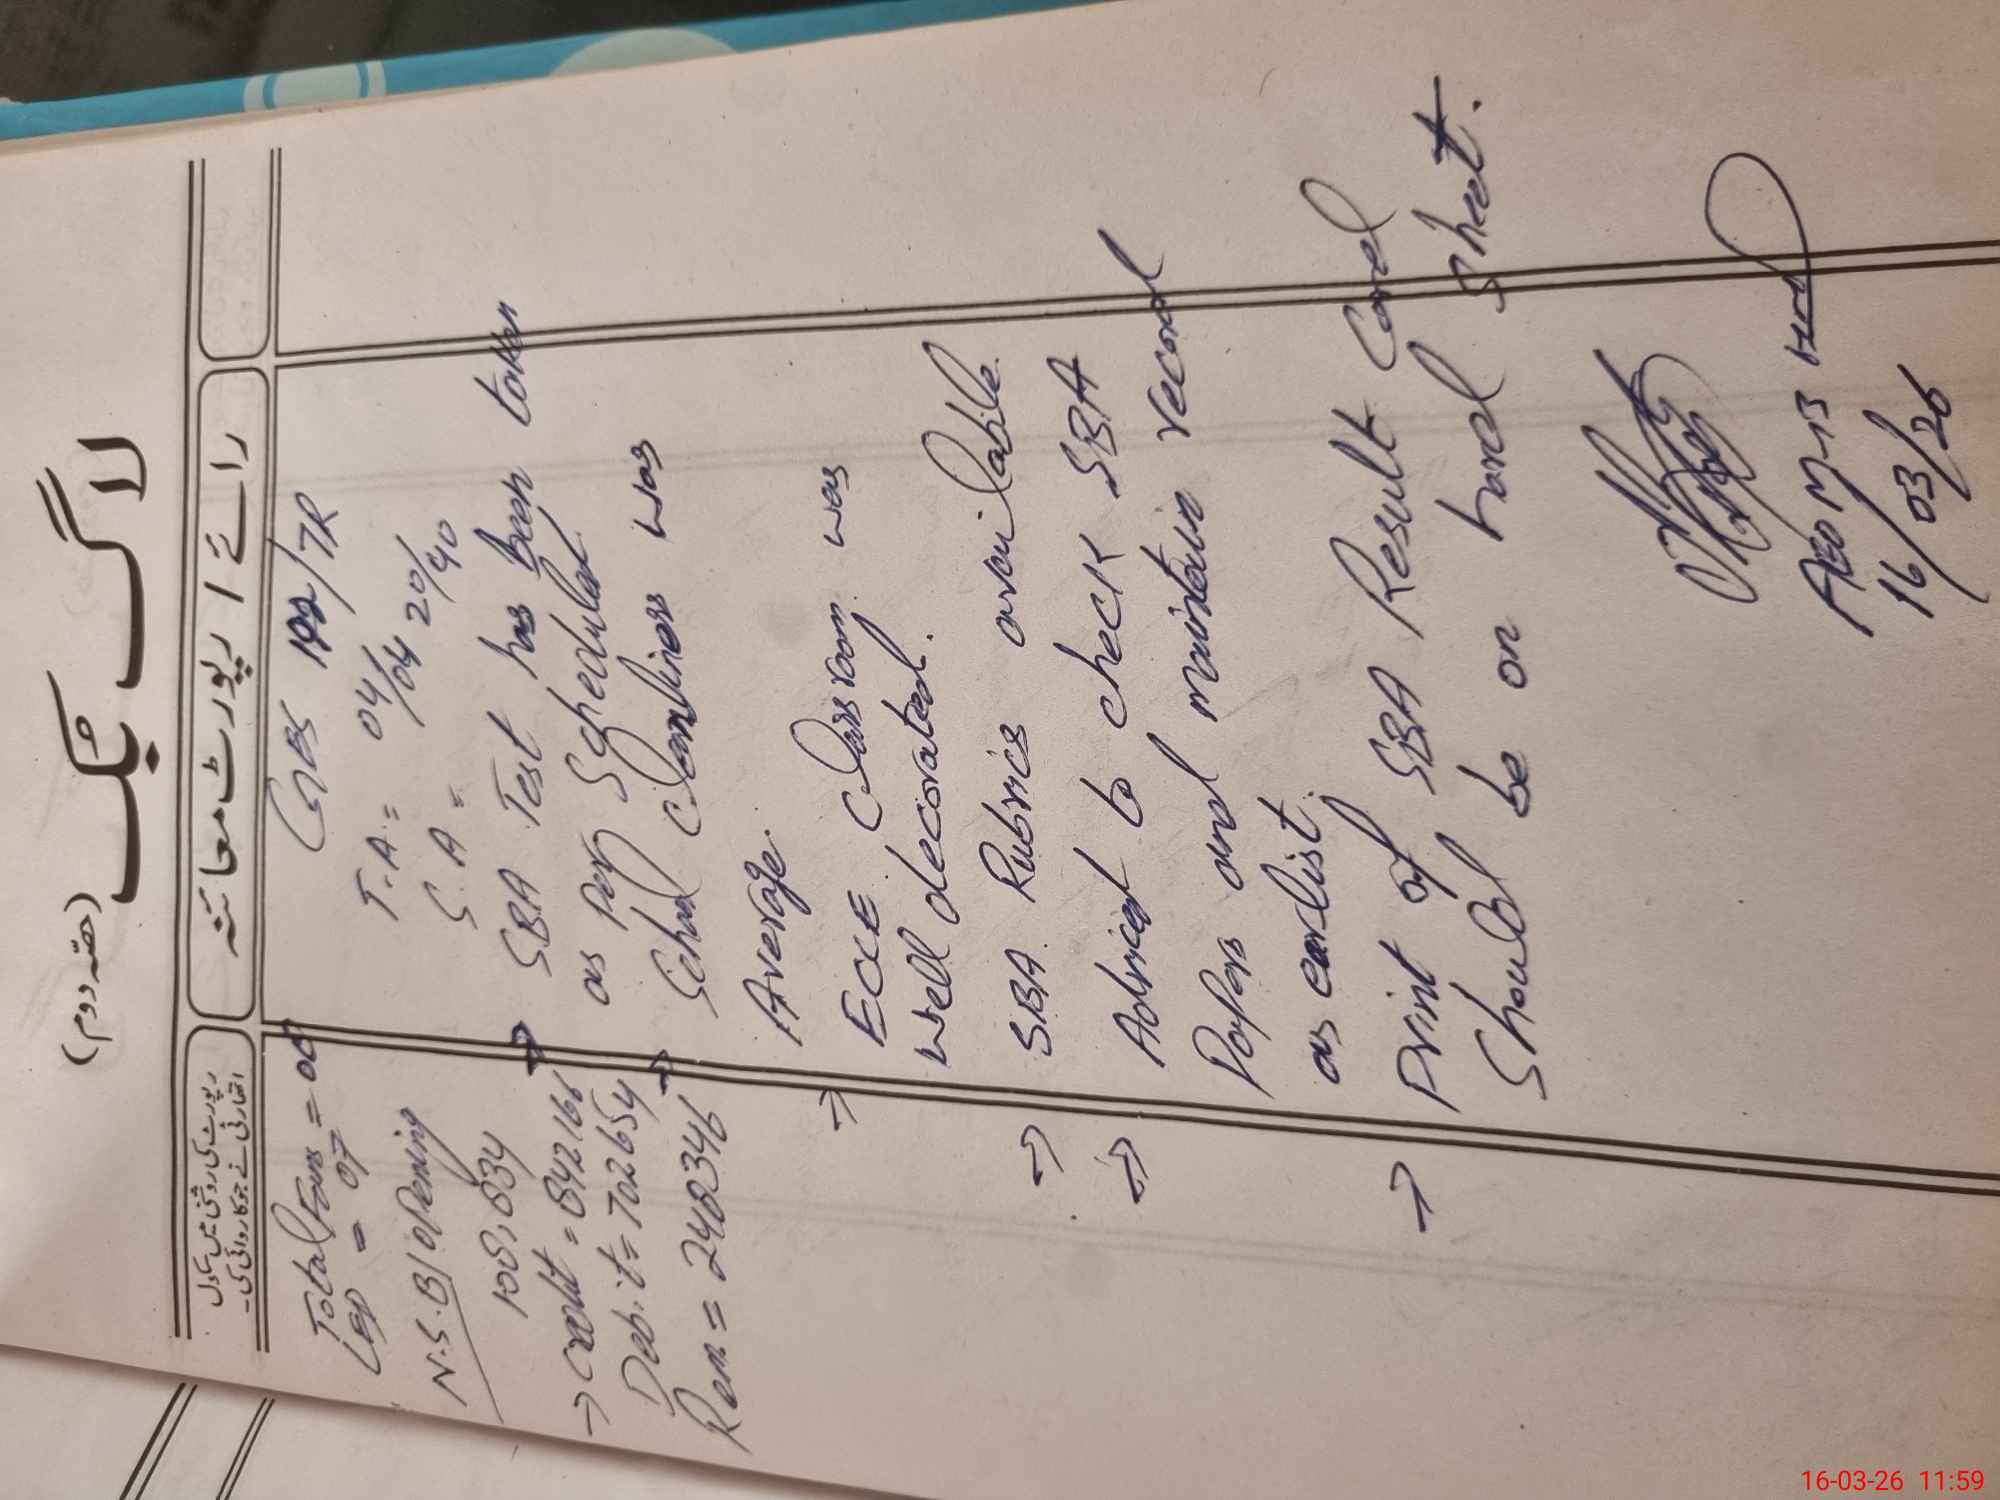 (حصّہ دوم)
لاگ بک
رپورٹ کی روشنی میں سکول
اتھارٹی نے جو کاروائی کی۔
رائے / رپورٹ معائنہ
GBS 192/TR
T.A = 04/04
S.A = 20/40
SBA Test has been taken
as per Schedulat
School Cleanliness was
Average.
ECCE Classroom was
well decorated.
SBA Rubrics available
Advised to check SBA
Papers and maintain record
as earlist.
Print of SBA Result Card
Should be on hard sheet.
AEO M-13
16/03/26
Total Fans = 06
LED = 07
N.S.B / opening
108,834
→ Credit = 842166
Debit = 702654
Rem = 248346
16-03-26 11:59